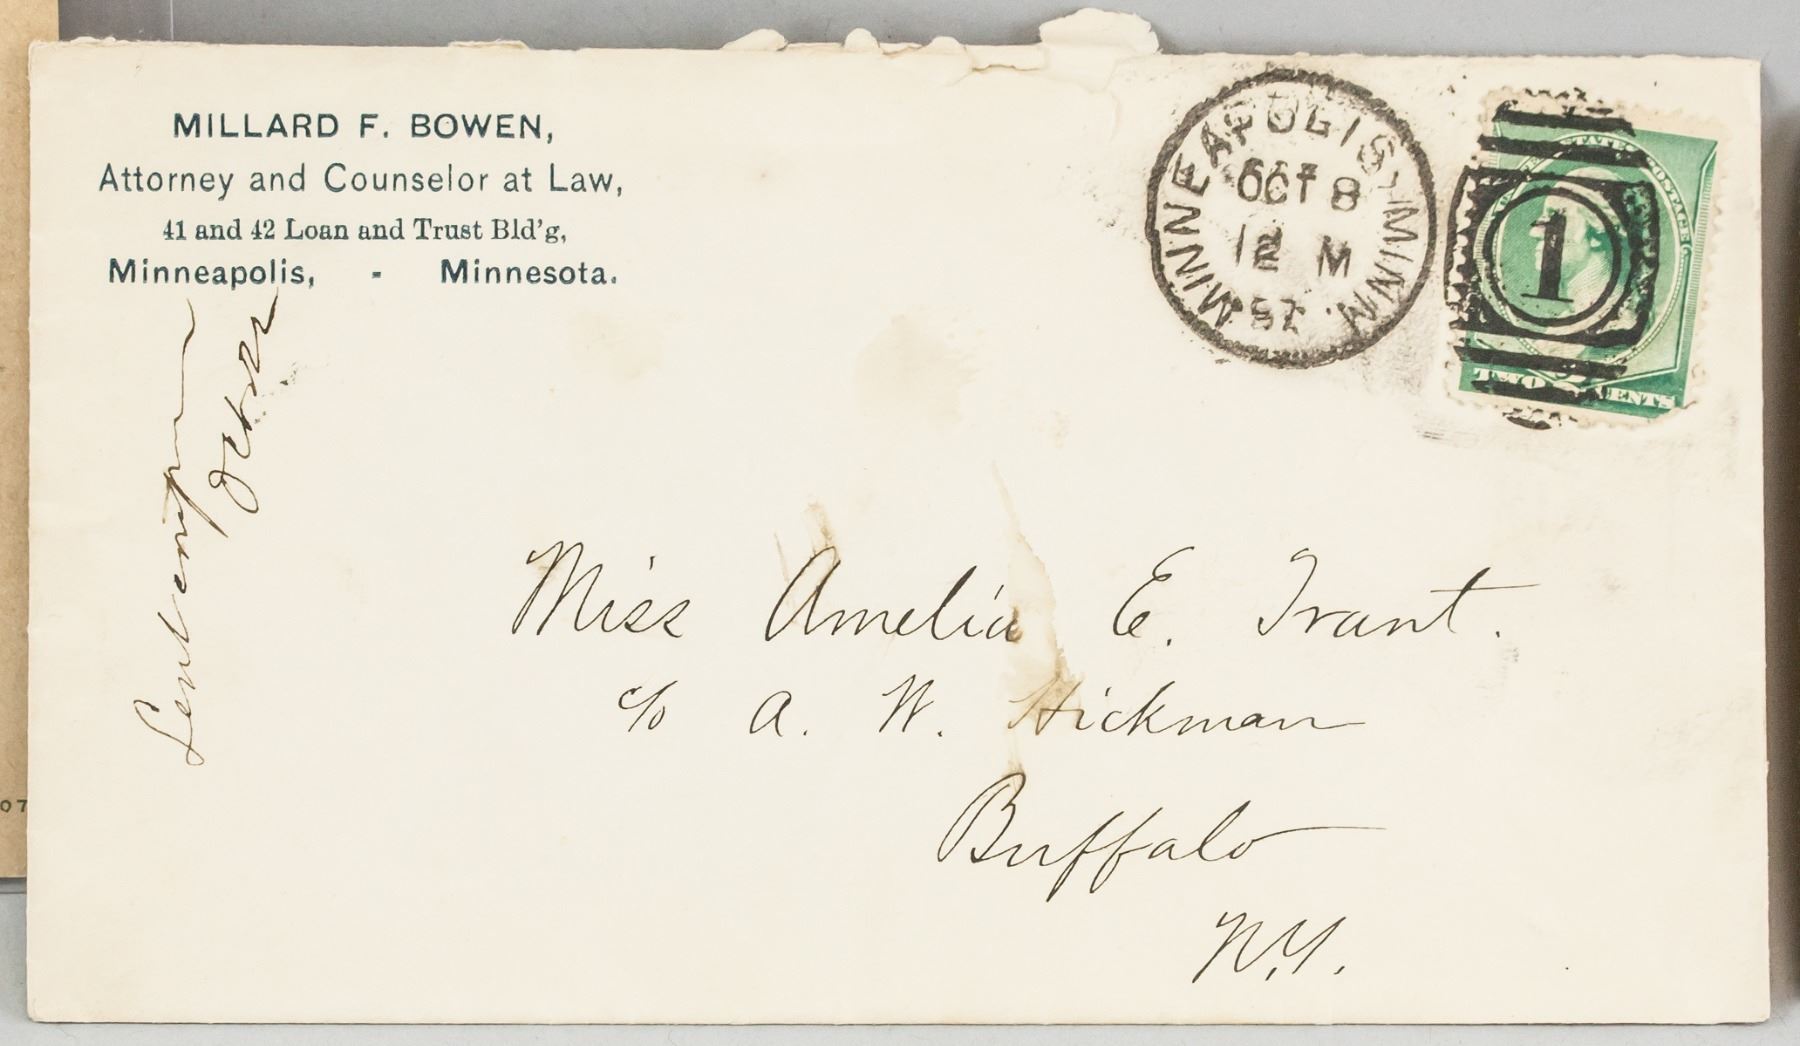 MILLARD F. BOWEN,
Attorney and Counselor at Law,
41 and 42 Loan and Trust Bld'g,
Minneapolis, - Minnesota.
MINNEAPOLIS, MINN.
OCT 8
12 M
1
STATES POSTAGE
TWO 2 CENTS
Miss Amelia E. Trant.
c/o A. W. Hickman
Buffalo
N.Y.
07